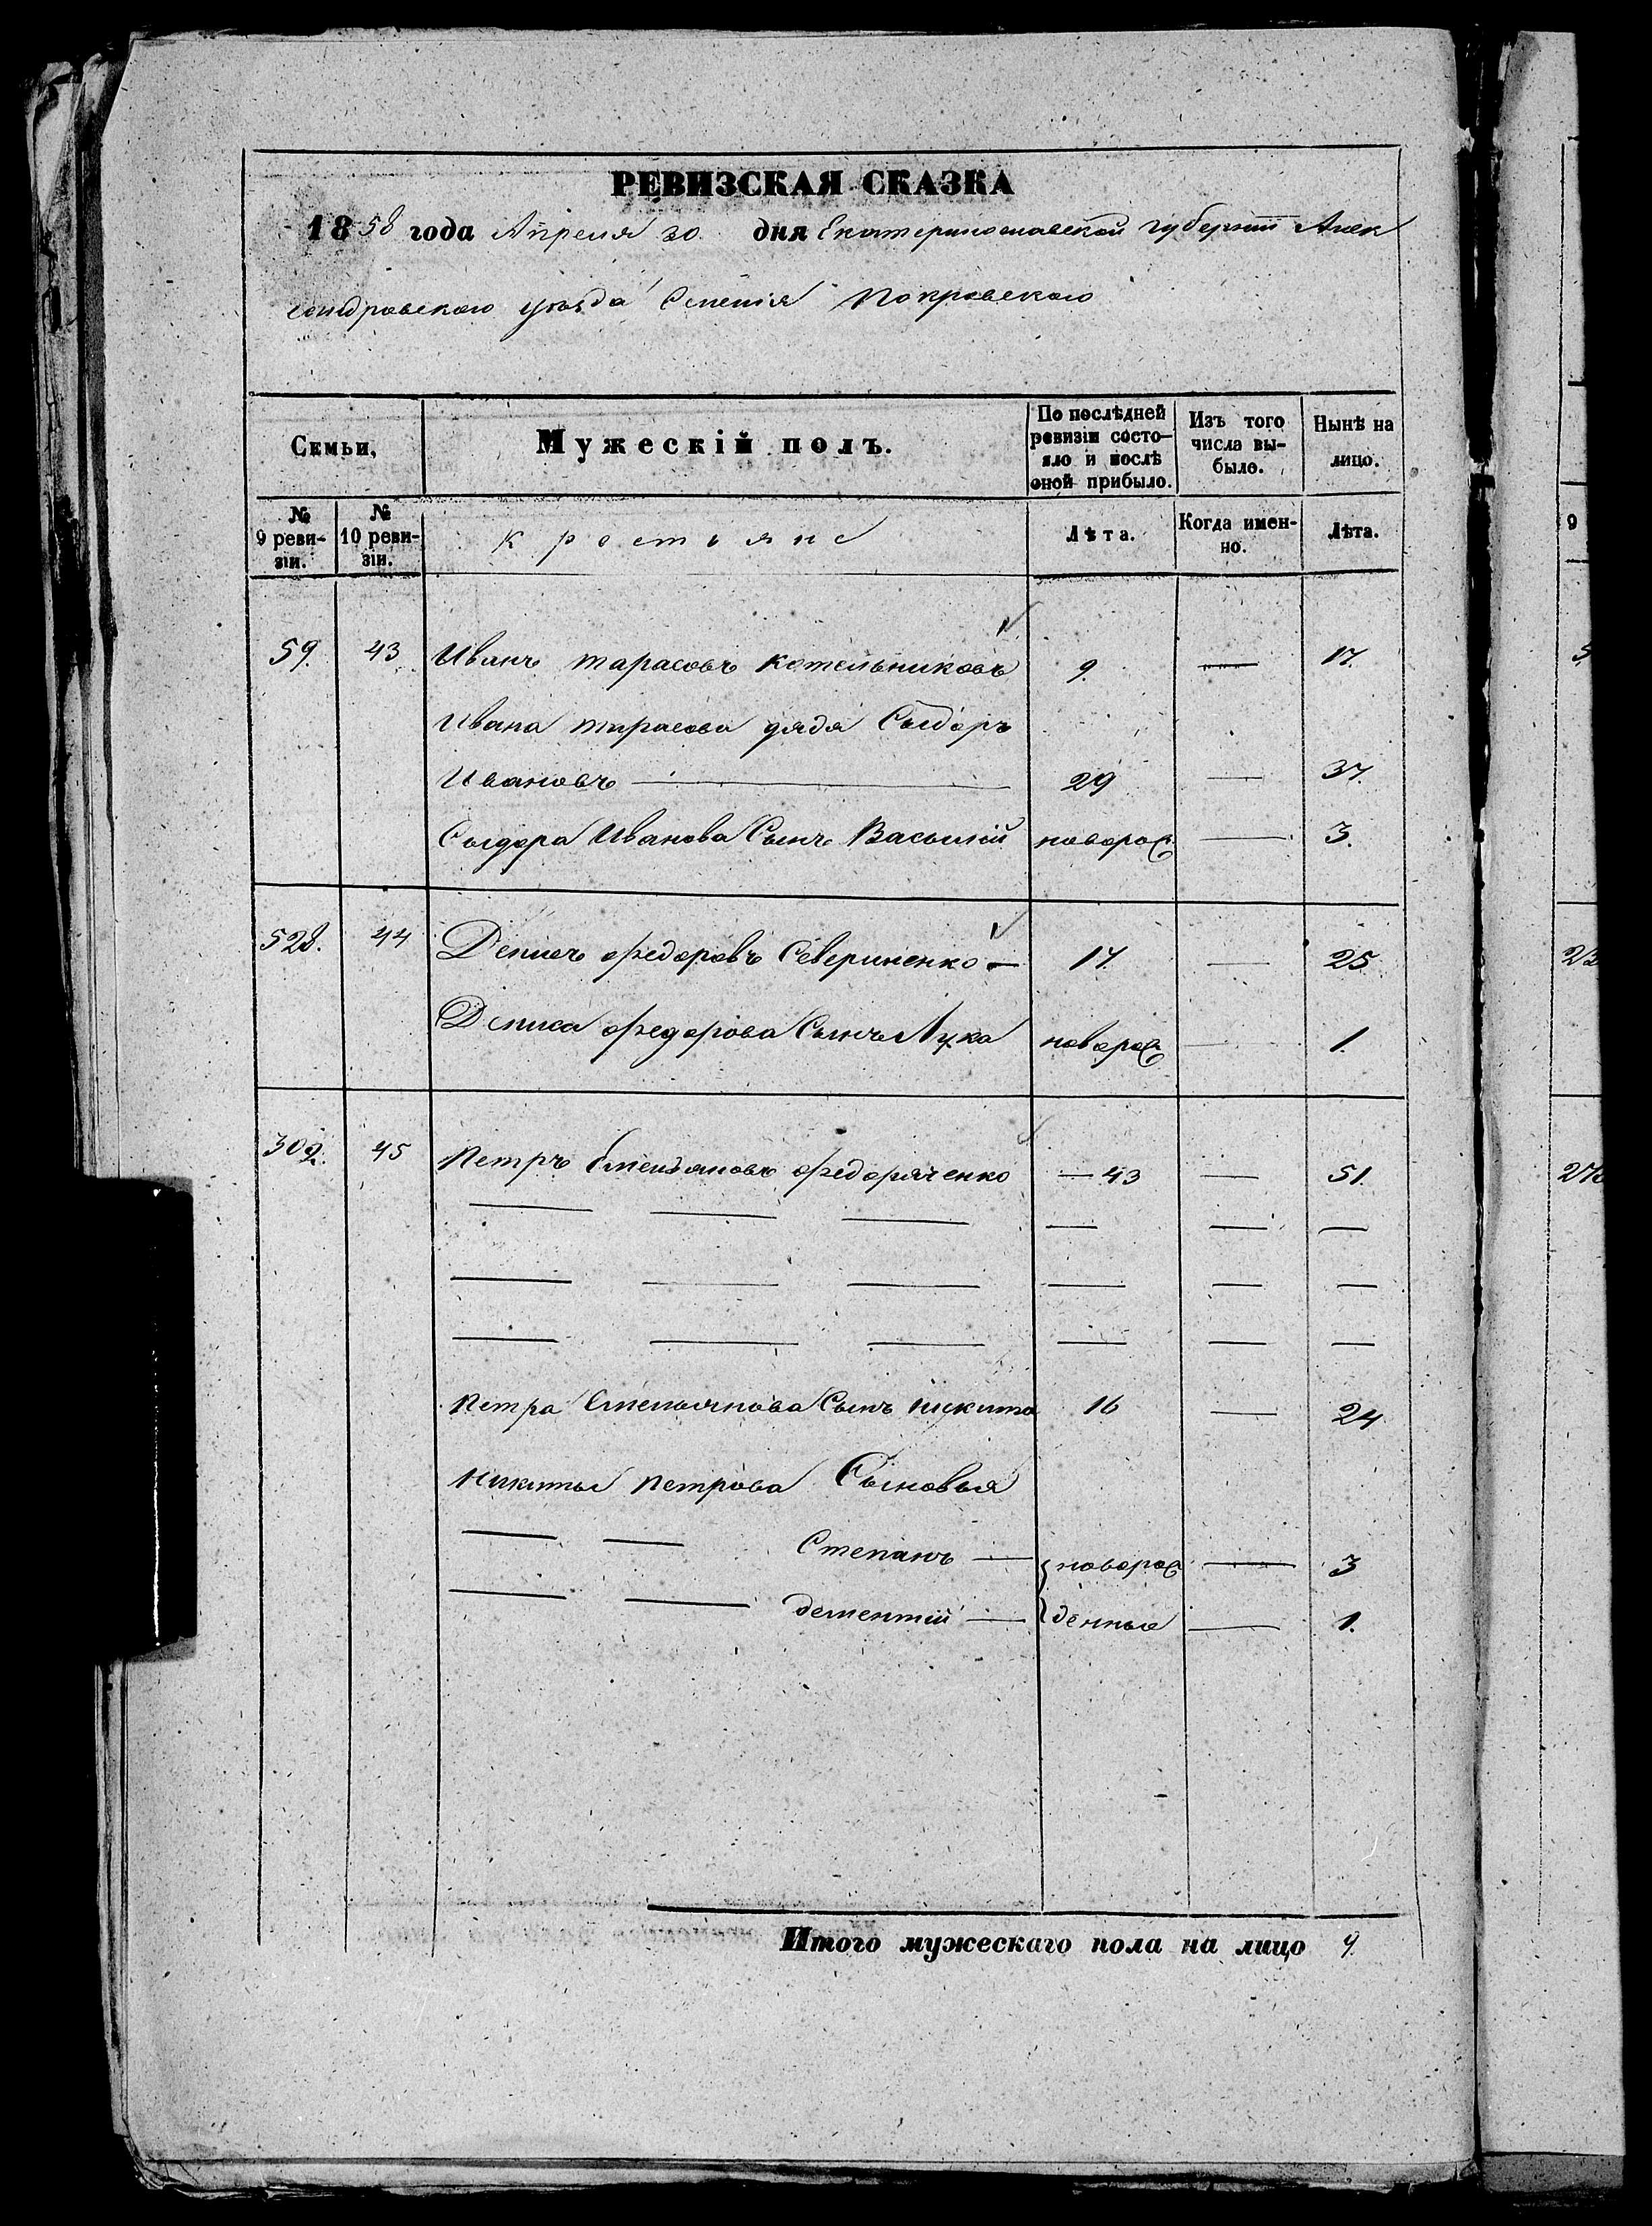 РЕВИЗСКАЯ СКАЗКА
1858 года Апреля 30. дня Екатеринославской губернии Алек
сандровского уѣзда Селенія Покровского
Семьи,
Мужескій полъ.
По послѣдней ревизіи состо-
яло и послѣ оной прибыло.
Изъ того числа вы-
было.
Нынѣ на лицо.
№ 9 реви-
зіи.
№ 10 реви-
зіи.
крестьяне
Лѣта.
Когда имен-
но.
Лѣта.
59. 43 Иванъ тарасовъ котельниковъ 9. — 17.
Ивана тарасова дядя Сыдоръ
Ивановъ — 29 — 37.
Сыдора Иванова Сынъ Васылій новорож — 3.
528. 44 Денисъ федоровъ Севериненко — 17. — 25
Дениса федорова Сынъ Лука новорож — 1.
302. 45 Петръ Емельяновъ федоряченко — 43 — 51.
— — — — — —
— — — — — —
— — — — — —
Петра Емельянова Сынъ никита 16 — 24
никиты петрова Сыновья
— — Степанъ — новорож — 3
— — дементій — денные — 1.
Итого мужескаго пола на лицо 9.
9